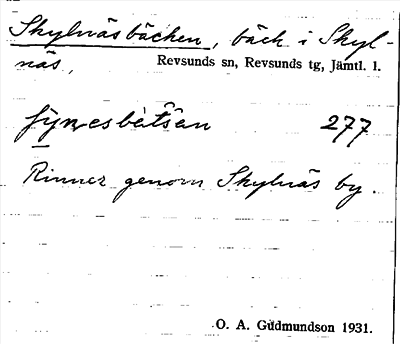 Skylnäsbäcken, bäck i Skyl-
näs, Revsunds sn, Revsunds tg, Jämtl. l.
277
Rinner genom Skylnäs by.
O. A. Gudmundson 1931.